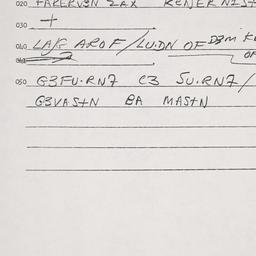 020 FAKERVSN ZAX KENER NIST
030 +
040 LAJG AROF/LU.DN OF D3M
OF
050 G3FU.RN7 C3 SU.RN7/
G3VAS+N BA MAS+N